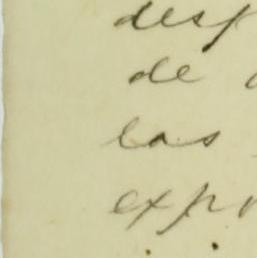 desp
de
las
expr